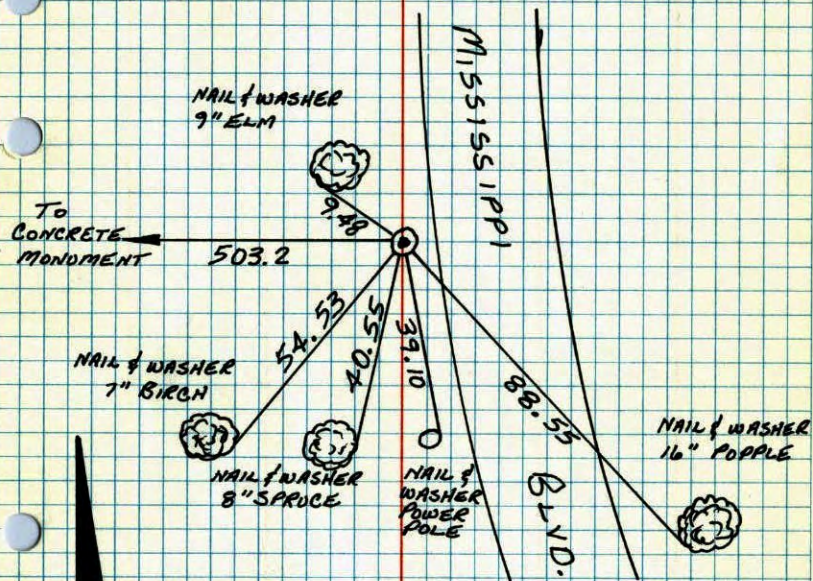 NAIL & WASHER
9" ELM
MISSISSIPPI
9.48
TO
CONCRETE
MONUMENT
503.2
54.53
40.55
39.10
88.55
NAIL & WASHER
7" BIRCH
NAIL & WASHER
8" SPRUCE
NAIL &
WASHER
POWER
POLE
NAIL & WASHER
16" POPPLE
BLVD.